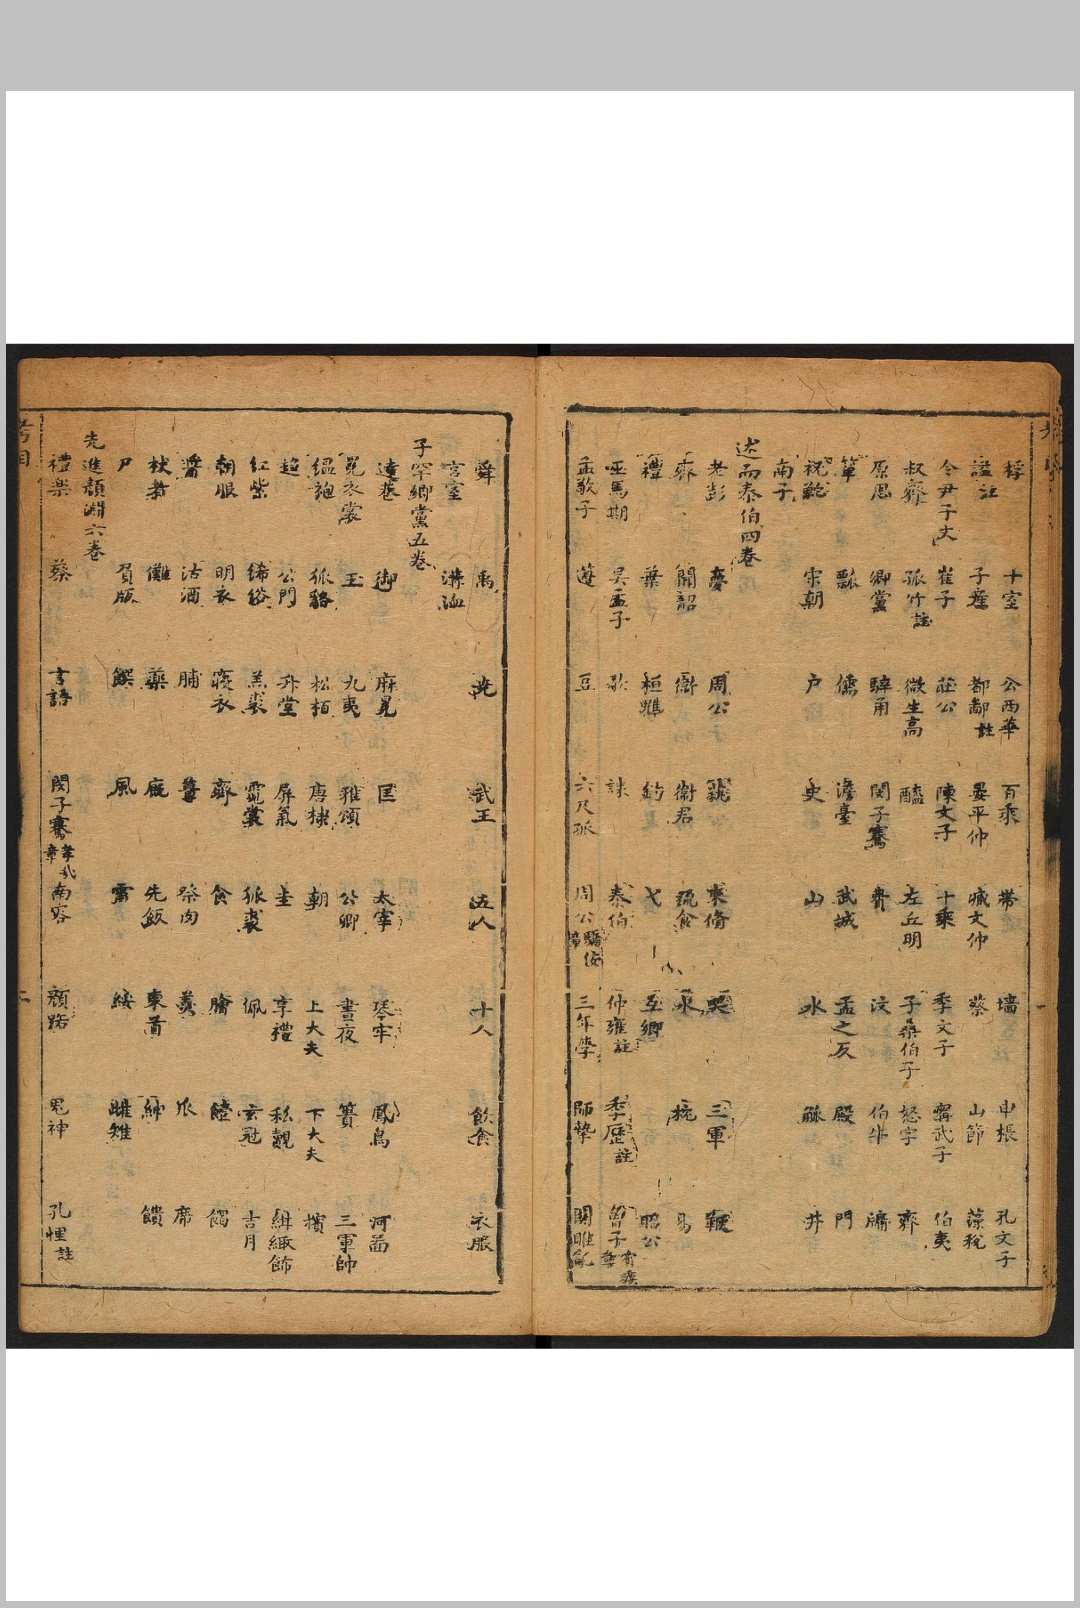 桴 十室 公西華 百乘 帶 墻 申棖 孔文子
諡註 子產 都鄙註 晏平仲 臧文仲 蔡 山節 藻梲
令尹子文 崔子 莊公 陳文子 十乘 季文子 甯武子 伯夷
叔齊 孤竹註 微生高 醯 左丘明 子桑伯子 怒字 齊
原思 鄉黨 騂角 閔子騫 費 汶 伯牛 牖
簞 瓢 儒 澹臺 武城 孟之反 殿 門
祝鮀 宋朝 戶 史 山 水 觚 井
南子
述而泰伯四卷
老彭 夢 周公 束脩 哭 三軍 鞭
齊 聞韶 衛 衛君 疏食 永 執 易
禮 葉 桓魋 釣 弋 互鄉 昭公
巫馬期 吳孟子 歌 誄 泰伯 仲雍註 季歷註 曾子
孟敬子 籩 豆 六尺孤 周公 三年學 師摯 關雎亂
舜 禹 堯 武王 五人 十人 飲食 衣服
宮室 溝洫
子罕鄉黨五卷
達巷 御 麻冕 匡 太宰 琴牢 鳳鳥 河圖
冕衣裳 玉 九夷 雅頌 公卿 晝夜 簣 三軍帥
縕袍 狐貉 松柏 唐棣 朝 上大夫 下大夫 擯
趨 公門 升堂 屏氣 圭 享禮 私覿 緅飾
紅紫 絺綌 羔裘 麑裘 狐裘 佩 玄冠 吉月
朝服 明衣 寢衣 齊 食 膾 饐 餲
醬 沽酒 脯 薑 祭肉 羹 瓜 席
杖者 儺 藥 廄 先飯 東首 紳 饋
尸 負版 饌 風 雷 綏 雌雉
先進顏淵六卷
禮樂 蔡 言語 閔子騫 南容 顏路 鬼神 孔悝註